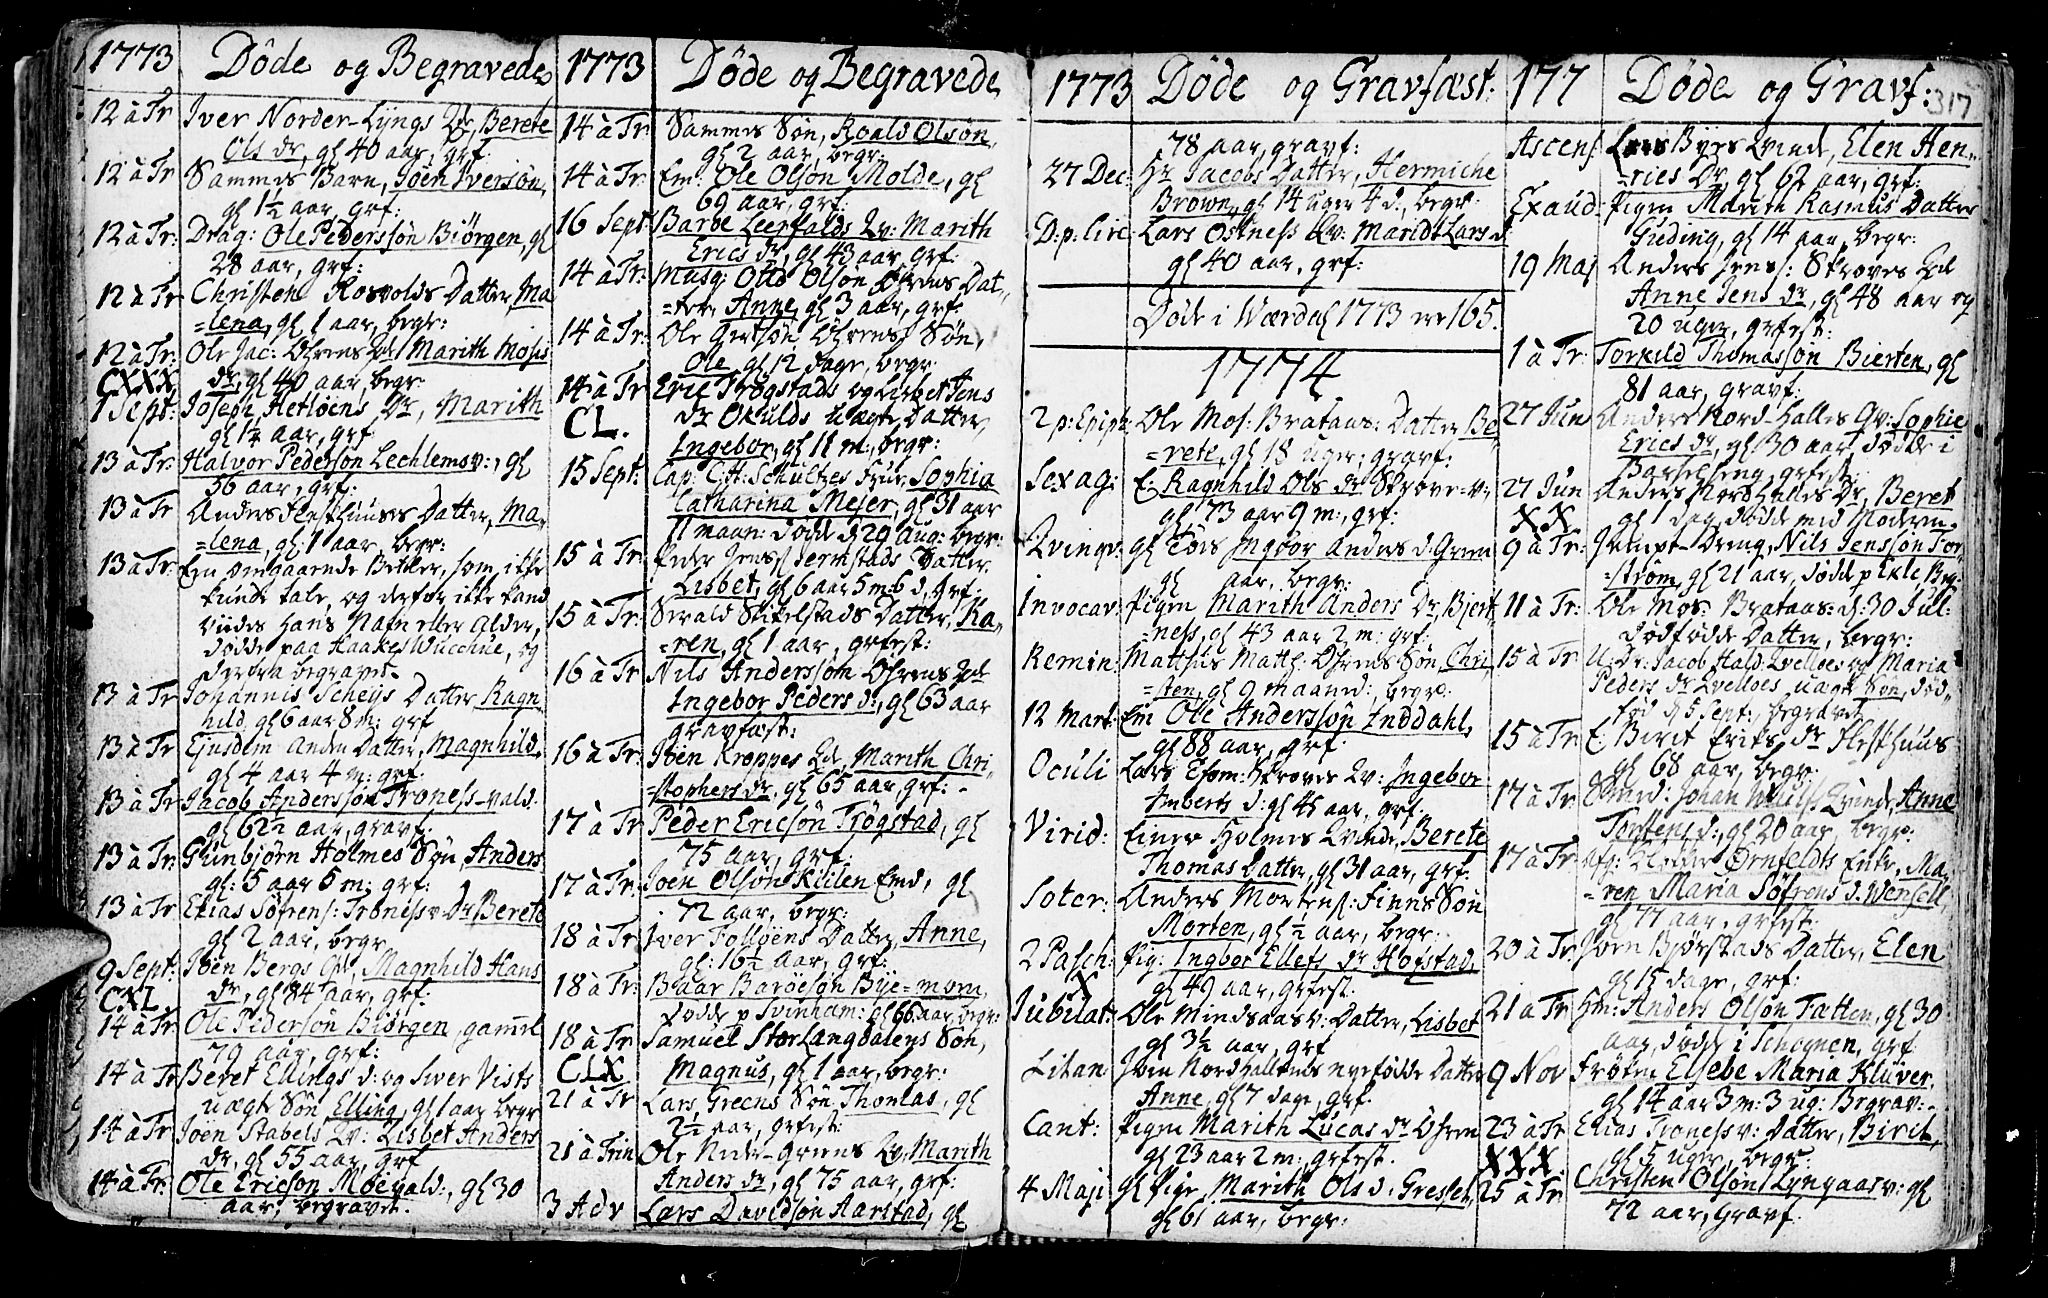 1773 Døde og Begravede
12 à Tr Iver Norder-Lyngs Qv, Berete
Ols dr, gl 40 aar, grf.
12 à Tr Sammes Barn, Joen Iversøn,
gl 1½ aar, grf:
12 à Tr: Drag: Ole Pederssøn Biørgen, gl
28 aar, grf:
12 à Tr Christen Rosvolds Datter Ma
=lena, gl 1 aar, begr:
12 à Tr: Ole Jac: Øhrens Marith Moses
CXXX dr, gl 40 aar, begr.
1 Sept: Joseph Hetløens Dr, Marith
gl 1½ aar, grf.
13 à Tr: Halvor Pedersøn Lechlemsv:, gl
56 aar, grf:
13 à Tr Anders Flesthuuses Datter, Ma-
=lena, gl: 1 aar, begr:
13 à Tr: Een omgaaende Betler, som ikke
kunde tale, og derfor ikke kand
viides hans Nafn eller Alder,
døde paa Haakes Wucchue, og
derfra begravet.
13 à Tr Johannis Scheys Datter Ragn-
hild, gl 6 aar 8 m: grf
13 à Tr Ejusdem anden Datter, Magnhild
gl 4 aar 4 m: grf.
13 à Tr Jacob Anderssøn Troness-vald.
gl 62½ aar, gravf:
13 à Tr: Gunbjørn Holmes Søn, Anders
gl: 5 aar 5 m: grf:
13 à Tr Elias Søfrens: Tronessv: Dr Berete
gl 2 aar, begr
9 Sept: Joen Bergs Qv, Magnhild Hans
CXL. dr, gl 84 aar, grf:
14 à Tr Ole Pedersøn Biørgen, gamel
79 aar, grf:
14 à Tr Beret Ellings d: og Siver Vists
uægte Søn Elling, gl 1 aar begr
14 à Tr Joen Stabels Qv: Lisbet Anders
dr, gl 55 aar, grf
14 à Tr: Ole Ericsøn Moevald:, gl 30
aar, begravet.
1773 Døde og Begravede
14 à Tr Sammes Søn, Roald Olsøn,
gl 2 aar, begr:
14 à Tr: Em: Ole Olsøn Molde, gl
69 aar, grf:
16 Sept: Baroe Leerfalds Qv: Marith
Erics dr, gl 43 aar, grf:
14 à Tr: Musq: Otto Olsøn Øhrens Dat-
=ter Anne, gl 3 aar, grf.
14 à Tr: Ole Gertsøn Øhrens Søn,
Ole, gl 12 dage, begr
14 à Tr Eric Trøgstads og Lisbet Jens
CL. dr Okulds uægte Datter
Ingebor, gl 11 m:, begr:
15 Sept: Cap: C.H: Schultzes Frue, Sophia
Catharina Mejer, gl 31 aar
11 maan: døde d 29 Aug: begr:
15 à Tr: Peder Jens: Jermstads Datter
Lisbet, gl 6 aar 5 m: 6 d, grf.
15 à Tr: Sevald Stikelstads Datter, Ka-
=ren, gl 1 aar, grfest:
16 à Tr Nils Anderssøn Øhrens
Ingebor Peders d:, gl 63 aar
gravfæst:
16 à Tr: Joen Kroppes Qv, Marith Chri-
=stophers dr, gl 65 aar, grf:
17 à Tr Peder Ericsøn Trøgstad, gl
75 aar, grf.
17 à Tr: Joen Olsøn Kulilen Emd, gl
72 aar, begr:
18 à Tr Iver Folløens Datter, Anne,
gl: 16½ aar, grf:
18 à Tr: Baar Baroesøn Bye=morn,
døde p Svinham: gl 66 aar, begr:
18 à Tr Samuel Storlangdalens Søn,
CLX Magnus, gl 1 aar, begr:
21 à Tr Lars Greens Søn Thomas, gl
2½ aar, grfest:
21 à Trin Ole Neder-Greens Qv, Marith
Anders dr, gl 75 aar, grf:
3 Adv Lars Davidsøn Aarstad, gl
1773 Døde og Gravfæst:
78 aar, gravf:
27 Dec: Hr Jacobs Datter, Hermiche
Brown, gl 14 uger 4 d:, begr:
D: p: Circ: Lars Ostness Qv: Maridt Lars d
gl 40 aar, grf:
Døde i Wærdal 1773 ere 165.
1774
2 p: Epiph: Ole Mos: Brataas: Datter Be-
=rete, gl 18 uger, gravf:
Sexag: E: Ragnhild Ols dr Skrove=v:
gl 73 aar 9 m:, grf:
Qvinqv: gl Ingbor Anders d: Green
gl aar, begr:
Invocav: Pigen Marith Anders Dr, Bjert
=ness, gl 43 aar 2 m: grf:
Remin: Matthis Matth: Øhrens Søn, Chri-
=sten, gl 9 maaned:, begr:
12 Mart: Em Ole Anderssøn Inddahl,
gl 88 aar, grf:
Oculi Lars Esom: Skroves Qv: Ingebor
Imberts d: gl 45 aar, grf:
Virid: Einer Holmes Qvinde, Berete
Thomas Datter, gl 31 aar, grf:
Soter: Anders Mortens: Finnes Søn
Morten, gl ½ aar, begr.
2 Pasch: Pig: Ingbor Ellefs dr Hofstad,
X gl 49 aar, grfest.
Jubilat: Ole Mindsaasv: Datter, Lisbet
gl 3½ aar, grf
Litan Joen Nordhallends nyefødde Datter
Anne, gl 7 dage, grf.
Cant: Pigen Marith Lucas dr Øhren
gl 23 aar 2 m:, grfest.
4 Maji gl Pige, Marith Ols d: Gresset,
gl 61 aar, begr:
177 Døde og Gravf: 317
Ascens Lars Byes Qvinde, Elen Hen-
=rics Dr, gl 62 aar, grf:
Exaud: Pigen Maren Rasmus Datter
Gieding, gl 14 aar, begr:
19 Maj Anders Jens: Skroves Qv
Anne Jens dr, gl 48 aar og
20 uger, grfest:
1 à Tr: Torkild Thomassøn Bierten, gl
81 aar, gravf:
27 Jun Anders Nord-Halles Qv: Sophie
Erics dr, gl 30 aar, døde i
Barselseng, grfest:
27 Jun Anders Nordhalles Dr, Beret
XX gl 1 dag, døde med Moderen.
9 à Tr: Jempt-Dreng, Nils Jenssøn For,
=strøm, gl 21 aar, døde p Ekle Beg:
11 à Tr: Ole Mos: Brataas: d: 30 Jul:
dødfødde Datter, begr:
15 à Tr U: Dr: Jacob Hald: Qvelloes og Maria
Peders dr Qvelloes uægte Søn, død-
fød d 5 Sept:, begravet
15 à Tr E: Birit Eriks dr Flesthuus
gl 68 aar, begr:
17 à Tr Smed: Johan Qvinde, Anne
Torstens d:, gl 20 aar, begr:
17 à Tr: Afg: Ørnfeldts Enke, Ma-
=ren Maria Søfrens d: Wensell,
gl 77 aar, grfest:
20 à Tr: Joen Bjørstads Datter, Elen
gl 15 dage, grf:
21 à Tr Hm: Anders Olsøn Tatten, gl 30
aar, døde i Schognen, grf
9 Nov Frøken Elsebe Maria Klüver,
gl 14 aar 3 m: 3 ug: Begrav:
23 à Tr Elias Tronessv: Datter, Birit,
XXX gl 5 uger, begr:
25 à Tr Christen Olsøn Lyngaasv: gl
72 aar, gravf.